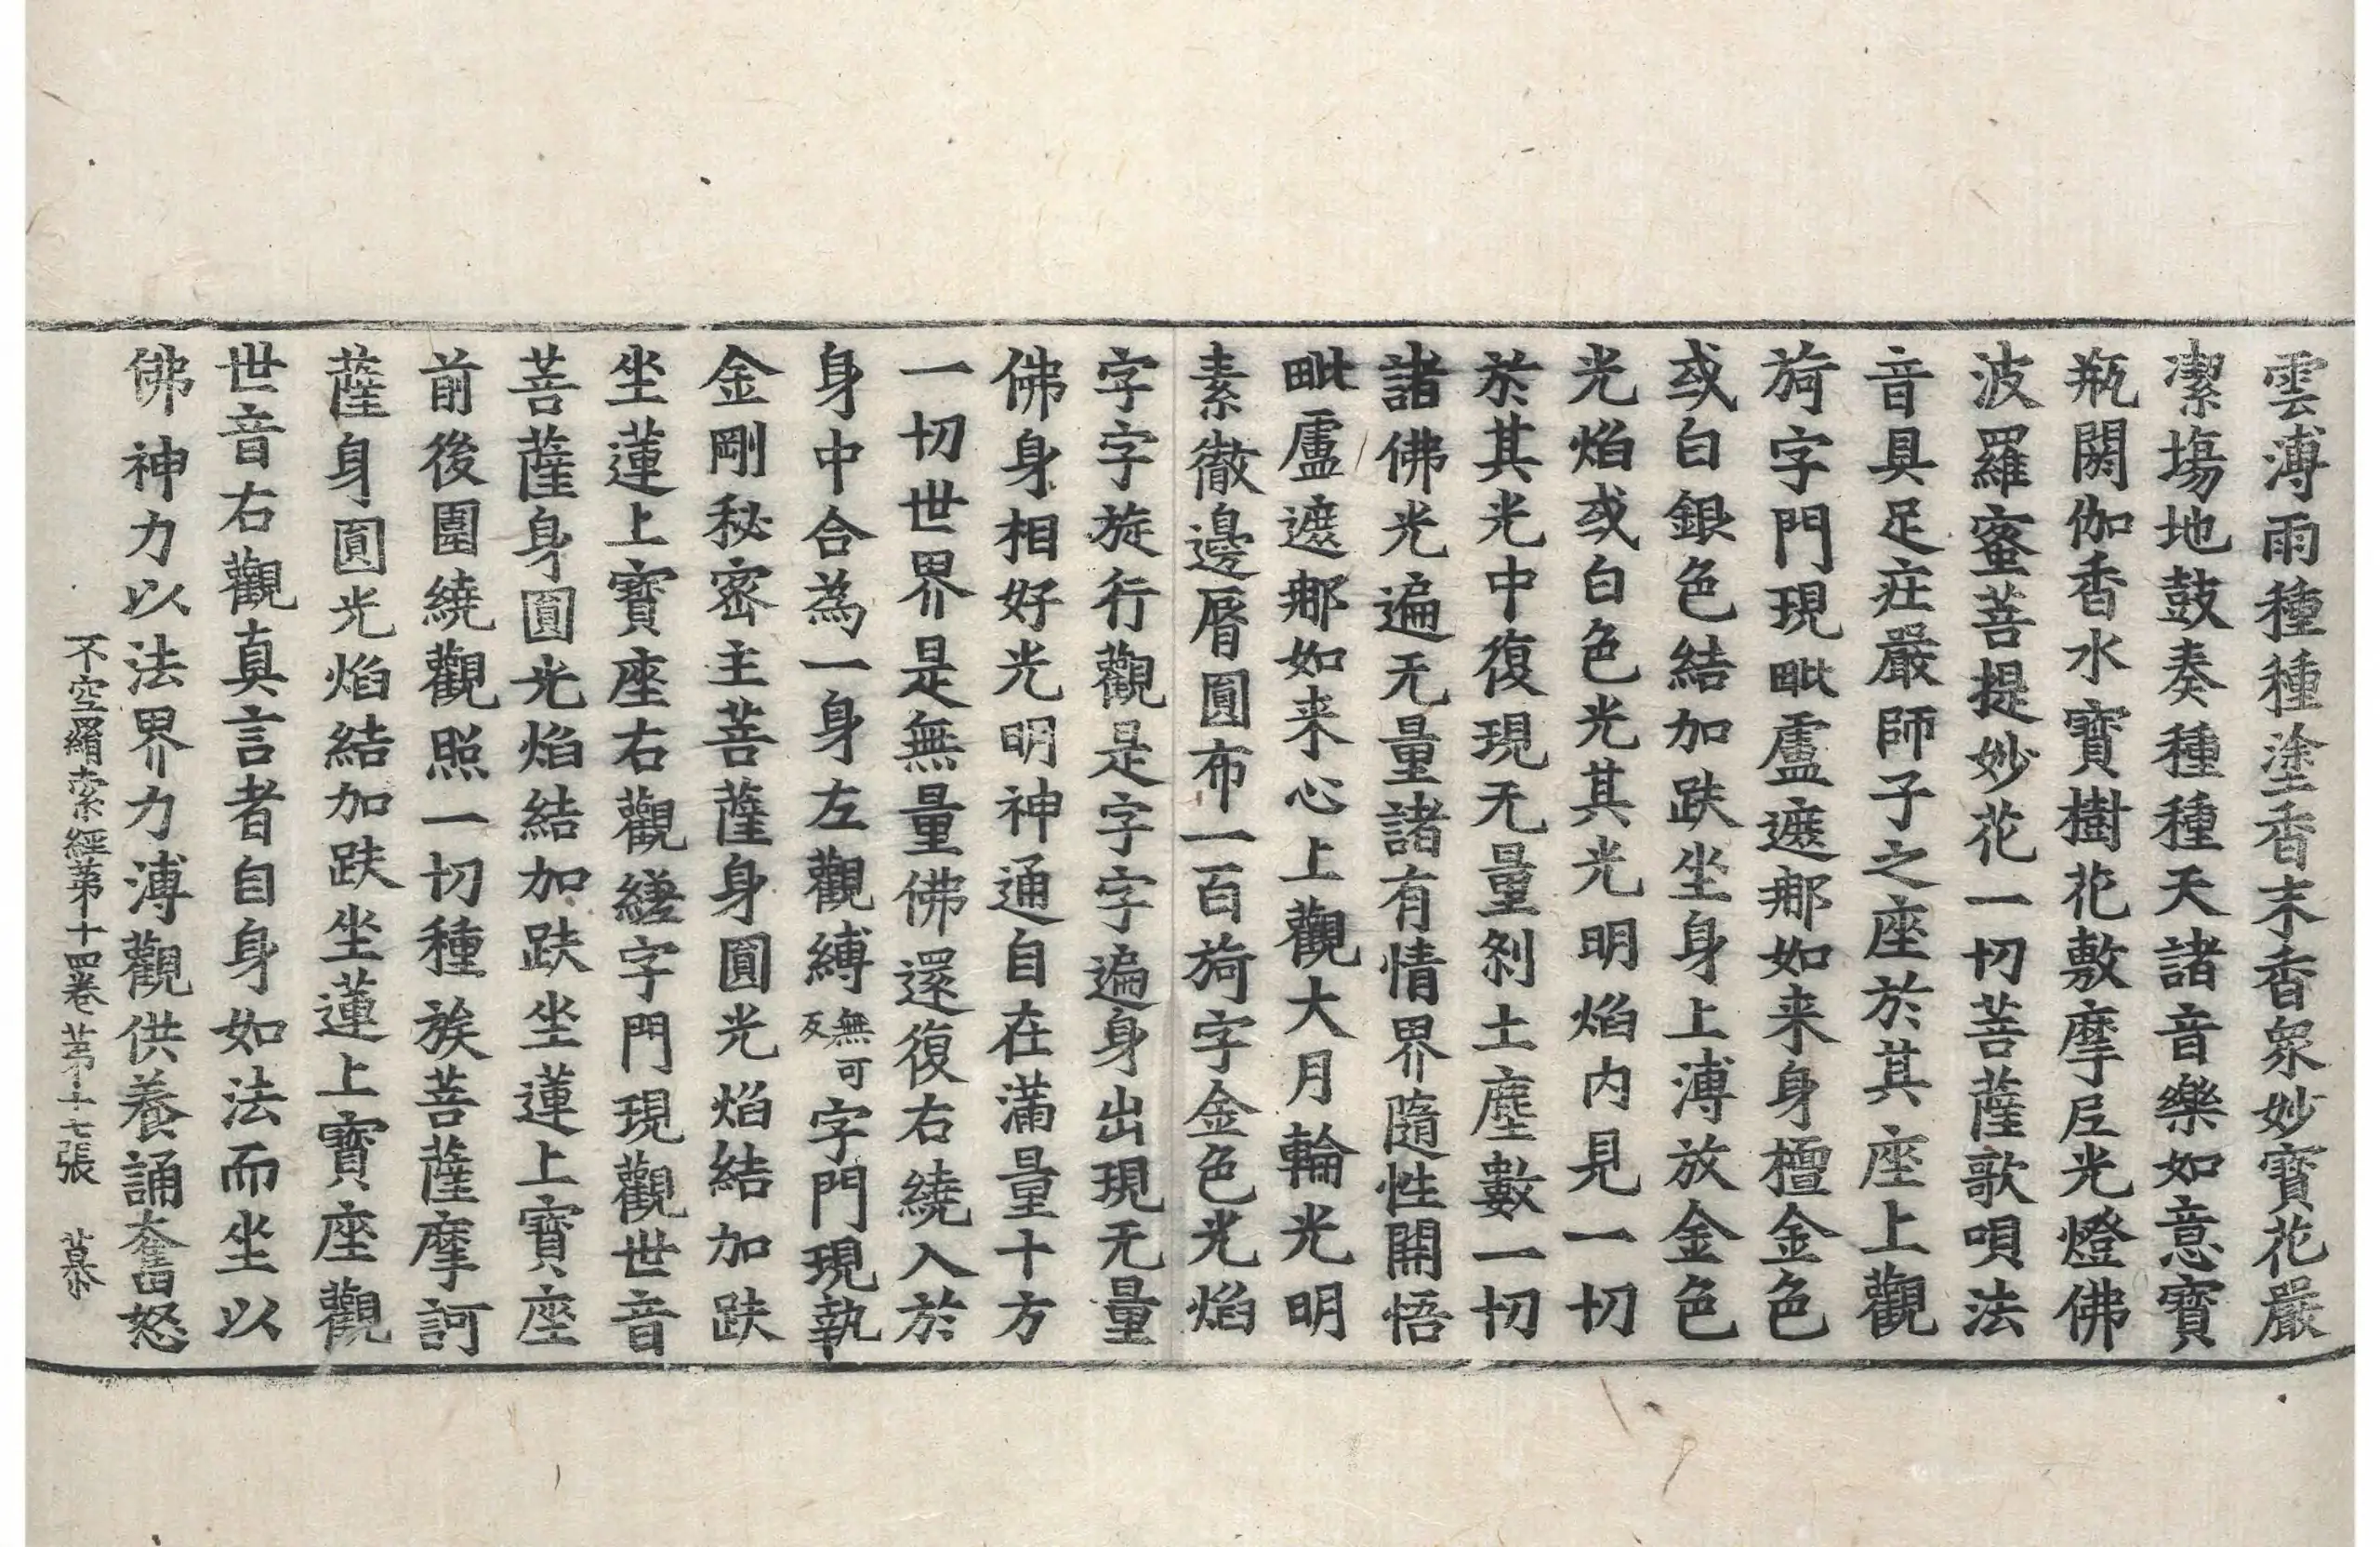 雲溥雨種種塗香末香衆妙寳花嚴
潔塲地鼓奏種種天諸音樂如意寳
瓶閼伽香水寳樹花敷摩尼光燈佛
波羅蜜菩提妙花一切菩薩歌唄法
音具足庄嚴師子之座於其座上觀
䏁字門現毗盧遮那如来身檀金色
或白銀色結加趺坐身上溥放金色
光焰或白色光其光明焰内見一切
於其光中復現无量剎土塵數一切
諸佛光遍无量諸有情界隨性開悟
毗盧遮那如来心上觀大月輪光明
素徹邊脣圓布一百䏁字金色光焰
字字旋行觀是字字遍身出現无量
佛身相好光明神通自在滿量十方
一切世界是無量佛還復右繞入於
身中合為一身左觀縛無可反字門現執
金剛秘密主菩薩身圓光焰結加趺
坐蓮上寳座右觀縒字門現觀世音
菩薩身圓光焰結加趺坐蓮上寳座
前後圍繞觀照一切種族菩薩摩訶
薩身圓光焰結加趺坐蓮上寳座觀
世音右觀真言者自身如法而坐以
佛神力以法界力溥觀供養誦奮怒
不空羂索經第十四卷 第十七張 慕